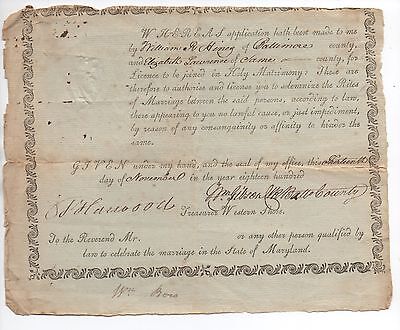 W H E R E A S application hath been made to me
by William R. Henry of Baltimore county,
and Elizabeth Lawrence of Same county, for
Licence to be joined in Holy Matrimony: These are
therefore to authorise and license you to solemnize the Rites
of Marriage between the said persons, according to law,
there appearing to you no lawful cause, or just impediment,
by reason of any consanguinity or affinity to hinder the
same.
G I V E N under my hand, and the seal of my office, this
day of November in the year eighteen hundred
Wm. Gibson Clk County
Harwood Treasurer Western Shore.
To the Reverend Mr. or any other person qualified by
law to celebrate the marriage in the State of Maryland.
Wm